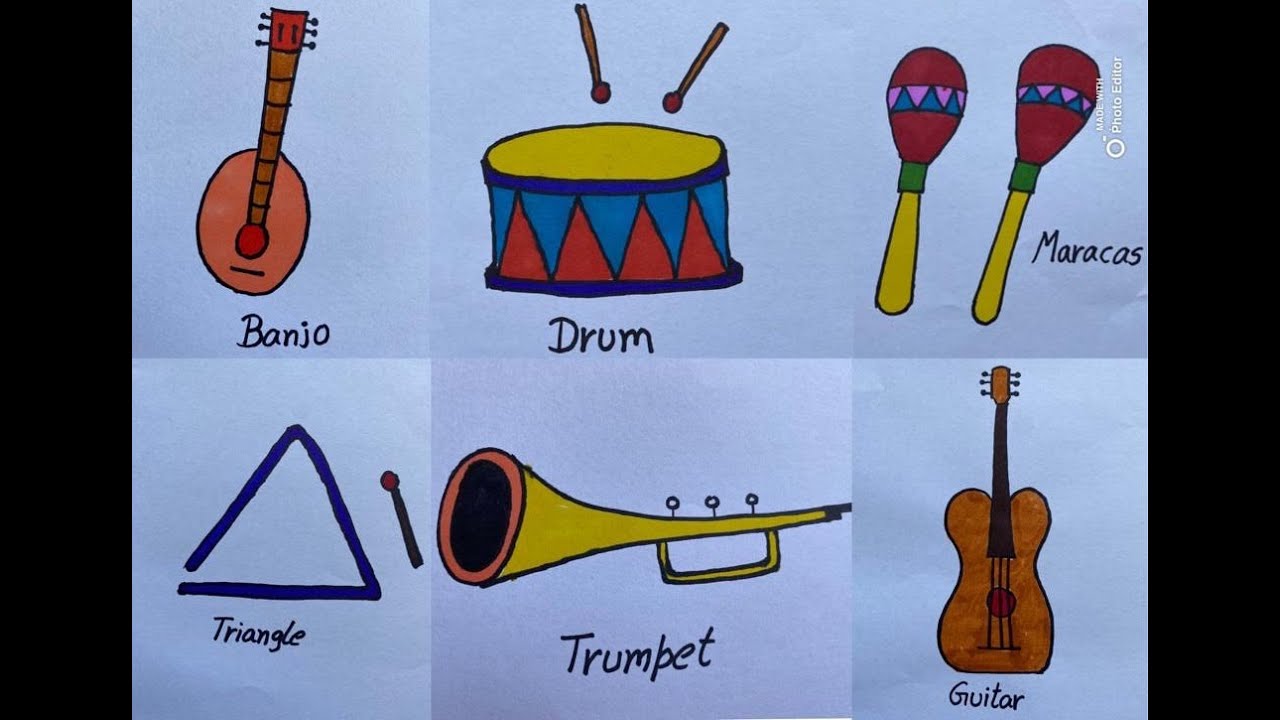 Banjo
Drum
Maracas
MADE WITH
Photo Editor
Triangle
Trumpet
Guitar